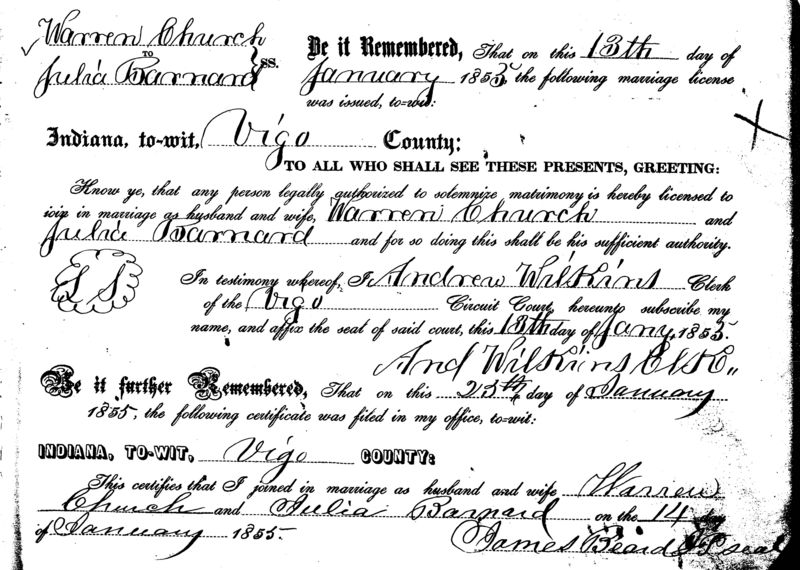 Warren Church
TO
Julia Barnard } SS.
Be it Remembered, That on this 13th day of
January 1855, the following marriage license
was issued, to-wit:
Indiana, to-wit, Vigo County:
TO ALL WHO SHALL SEE THESE PRESENTS, GREETING:
Know ye, that any person legally authorized to solemnize matrimony is hereby licensed to
join in marriage as husband and wife, Warren Church and
Julia Barnard and for so doing this shall be his sufficient authority.
L S
In testimony whereof, I Andrew Wilkins Clerk
of the Vigo Circuit Court, hereunto subscribe my
name, and affix the seal of said court, this 13th day of Jany. 1855.
And Wilkins Clk
Be it further Remembered, That on this 25th day of January
1855, the following certificate was filed in my office, to-wit:
INDIANA, TO-WIT, Vigo COUNTY:
This certifies that I joined in marriage as husband and wife Warren
Church and Julia Barnard on the 14 day
of January 1855.
James Beard J P seal